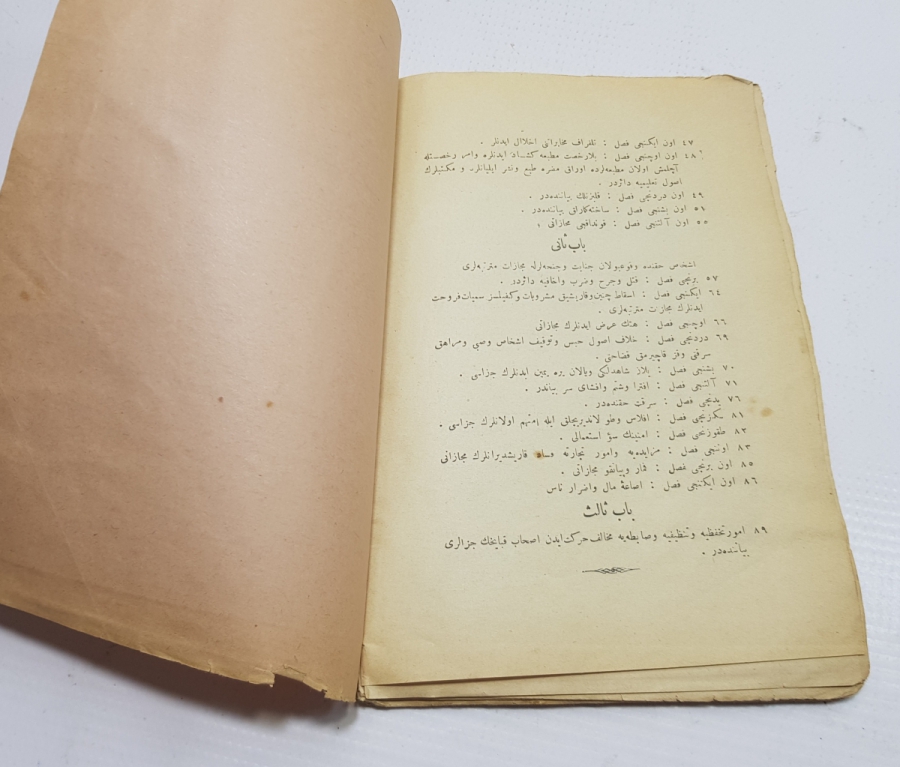 ٤٧ اون ایكنجی فصل : تلغراف مخابراتی اخلال ایدنلر .
٤٨ اون اوچنجی فصل : بلارخصت مطبعه كشاد ایدنلره وامر رخصتله
آچلمش اولان مطبعه‌لرده اوراق مضره طبع ونشر ایلیانلره و مكتبلرك
اصول تعلیمیه دائردر .
٤٩ اون دردنجی فصل : قلبزنلك بیاننده‌در .
٥١ اون بشنجی فصل : ساخته‌كارلق بیاننده‌در .
٥٥ اون آلتنجی فصل : قونداقجی مجازاتی .
باب ثانی
اشخاص حقنده وقوعبولان جنایت وجنحه‌لرله مجازات مترتبه‌لری
٥٧ برنجی فصل : قتل وجرح وضرب واخافیه دائردر .
٦٤ ایكنجی فصل : اسقاط جنین وقاریشیق مشروبات وكفیلسز سمیات فروخت
ایدنلرك مجازات مترتبه‌لری .
٦٦ اوچنجی فصل : هتك عرض ایدنلرك مجازاتی
٦٩ دردنجی فصل : خلاف اصول حبس وتوقیف اشخاص وصبی ومراهق
سرقتی وقز قاچیرمق قضاحتی .
٧٠ بشنجی فصل : یلان شاهدلكی ویالان یره یمین ایدنلرك جزاسی .
٧١ آلتنجی فصل : افترا وشتم وافشای سر بیاندر .
٧٦ یدنجی فصل : سرقت حقنده‌در .
٨١ سكزنجی فصل : افلاس وطولاندیریجیلق ایله متهم اولانلرك جزاسی .
٨٣ طقوزنجی فصل : امنیتك سؤ استعمالی .
٨٣ اوننجی فصل : مزایده‌یه وامور تجارته فساد قاریشدیرانلرك مجازاتی
٨٥ اون برنجی فصل : قمار وپیانقو مجازاتی .
٨٦ اون ایكنجی فصل : اضاعهٔ مال واضرار ناس
باب ثالث
٨٩ امور تحفظیه وتنظیفیه وضابطه‌یه مخالف حركت ایدن اصحاب قباحتك جزالری
بیاننده‌در .